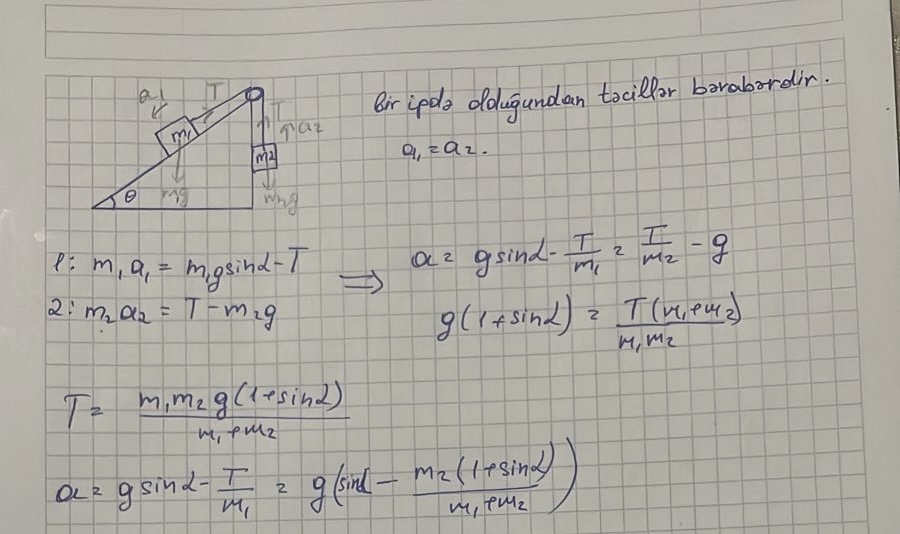 a₁ T
m₁
T
a₂
m₂
θ m₁g m₂g
Bir ipdə olduğundan təcillər bərabərdir.
a₁ = a₂.
1: m₁a₁ = m₁gsinα - T
2: m₂a₂ = T - m₂g
⇒
a = gsinα - T/m₁ = T/m₂ - g
g(1+sinα) = T(m₁+m₂)/m₁m₂
T = m₁m₂g(1+sinα)/m₁+m₂
a = gsinα - T/m₁ = g(sinα - m₂(1+sinα)/m₁+m₂)